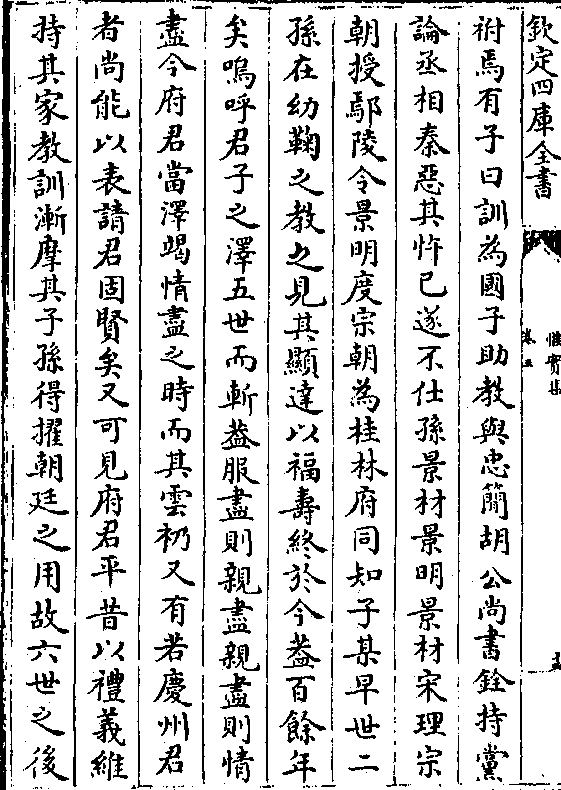 欽定四庫全書
惟實集
卷五
祔焉有子曰訓為國子助教與忠簡胡公尚書銓持黨
論丞相秦惡其忤已遂不仕孫景材景明景材宋理宗
朝授鄢陵令景明度宗朝為桂林府同知子某早世二
孫在幼鞠之教之見其顯達以福壽終於今葢百餘年
矣嗚呼君子之澤五世而斬葢服盡則親盡親盡則情
盡今府君當澤竭情盡之時而其雲礽又有若慶州君
者尚能以表請君固賢矣又可見府君平昔以禮義維
持其家教訓漸摩其子孫得擢朝廷之用故六世之後